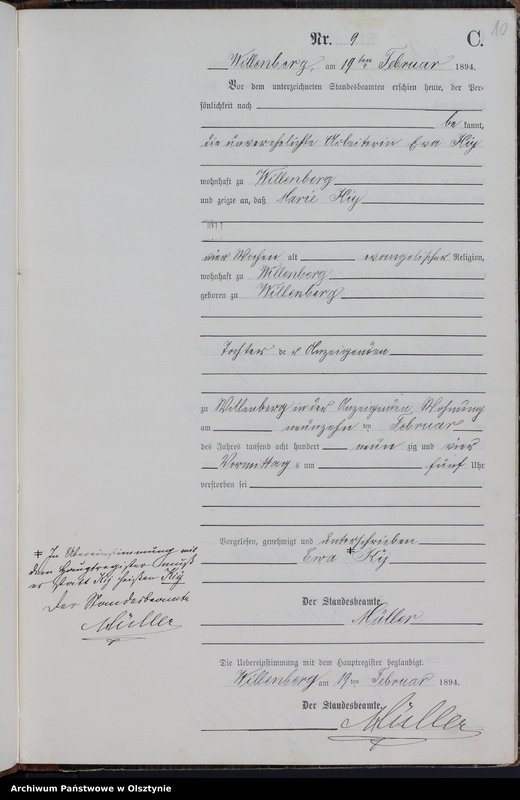 10
Nr. 9 C.
Willenberg, am 19ten Februar 1894.
Vor dem unterzeichneten Standesbeamten erschien heute, der Per-
sönlichkeit nach
be kannt,
die unverehelichte Arbeiterin Eva Kig
wohnhaft zu Willenberg
und zeigte an, daß Marie Kig
vier Wochen alt evangelischer Religion,
wohnhaft zu Willenberg
geboren zu Willenberg
Tochter de r Anzeigenden
zu Willenberg in der Anzeigenden Wohnung
am neunzehn ten Februar
des Jahres tausend acht hundert neun zig und vier
Vormittag s um fünf Uhr
verstorben sei
Vorgelesen, genehmigt und unterschrieben
Ewa * Ky
* In Übereinstimmung mit
dem Hauptregister muß
es statt Ky heißen Kig
Der Standesbeamte
Müller
Der Standesbeamte.
Müller
Die Uebereinstimmung mit dem Hauptregister beglaubigt.
Willenberg am 19ten Februar 1894.
Der Standesbeamte.
Müller
Archiwum Państwowe w Olsztynie